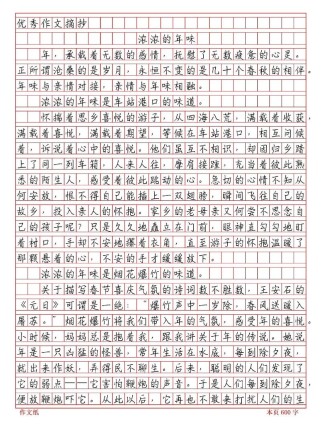 优秀作文摘抄
浓浓的年味
年，承载着无数的感情，抚慰了无数疲惫的心灵。
正所谓沧桑的是岁月，永恒不变的是几十个春秋的相伴。
年味与亲情对接，亲情与年味相融。
浓浓的年味是车站港口的味道。
怀揣着思乡喜悦的游子，从四海八荒，满载着收获，
满载着喜悦，满载着期望，等候在车站港口，相互问候
着，诉说着心中的喜悦。他们虽互不相识，却因归乡踏
上了同一列车箱，人来人往，摩肩接踵，充当着彼此熟
悉的陌生人，感受着彼此跳动的心。急切的心情不知从
何安放，恨不得自己能插上一双翅膀，瞬间飞往自己的
故乡，投入亲人的怀抱。家乡的老母亲又何尝不思念自
己的孩子呢？只是久久地矗立在门前，眼神直勾勾地盯
着村口，手却不安地攥着衣角，直至游子的怀抱温暖了
那颗悬着的心，不安的手才缓缓放下。
浓浓的年味是烟花爆竹的味道。
关于描写春节喜庆气氛的诗词数不胜数，王安石的
《元日》可谓是一绝：“爆竹声中一岁除，春风送暖入
屠苏。”烟花爆竹将我们带入年的气氛，感受年的喜悦。
小时候，妈妈总是抱着我，跟我讲关于年的传说。她说
年是一只凶猛的怪兽，常年生活在水底，每到除夕夜，
就出来作妖，弄得民不聊生。后来，人们发现发现了
它的弱点——它害怕鞭炮的声音。于是人们每到除夕夜，
便放鞭炮吓它。从此以后，它再也不敢来打扰人们的生
作文纸
本页600字